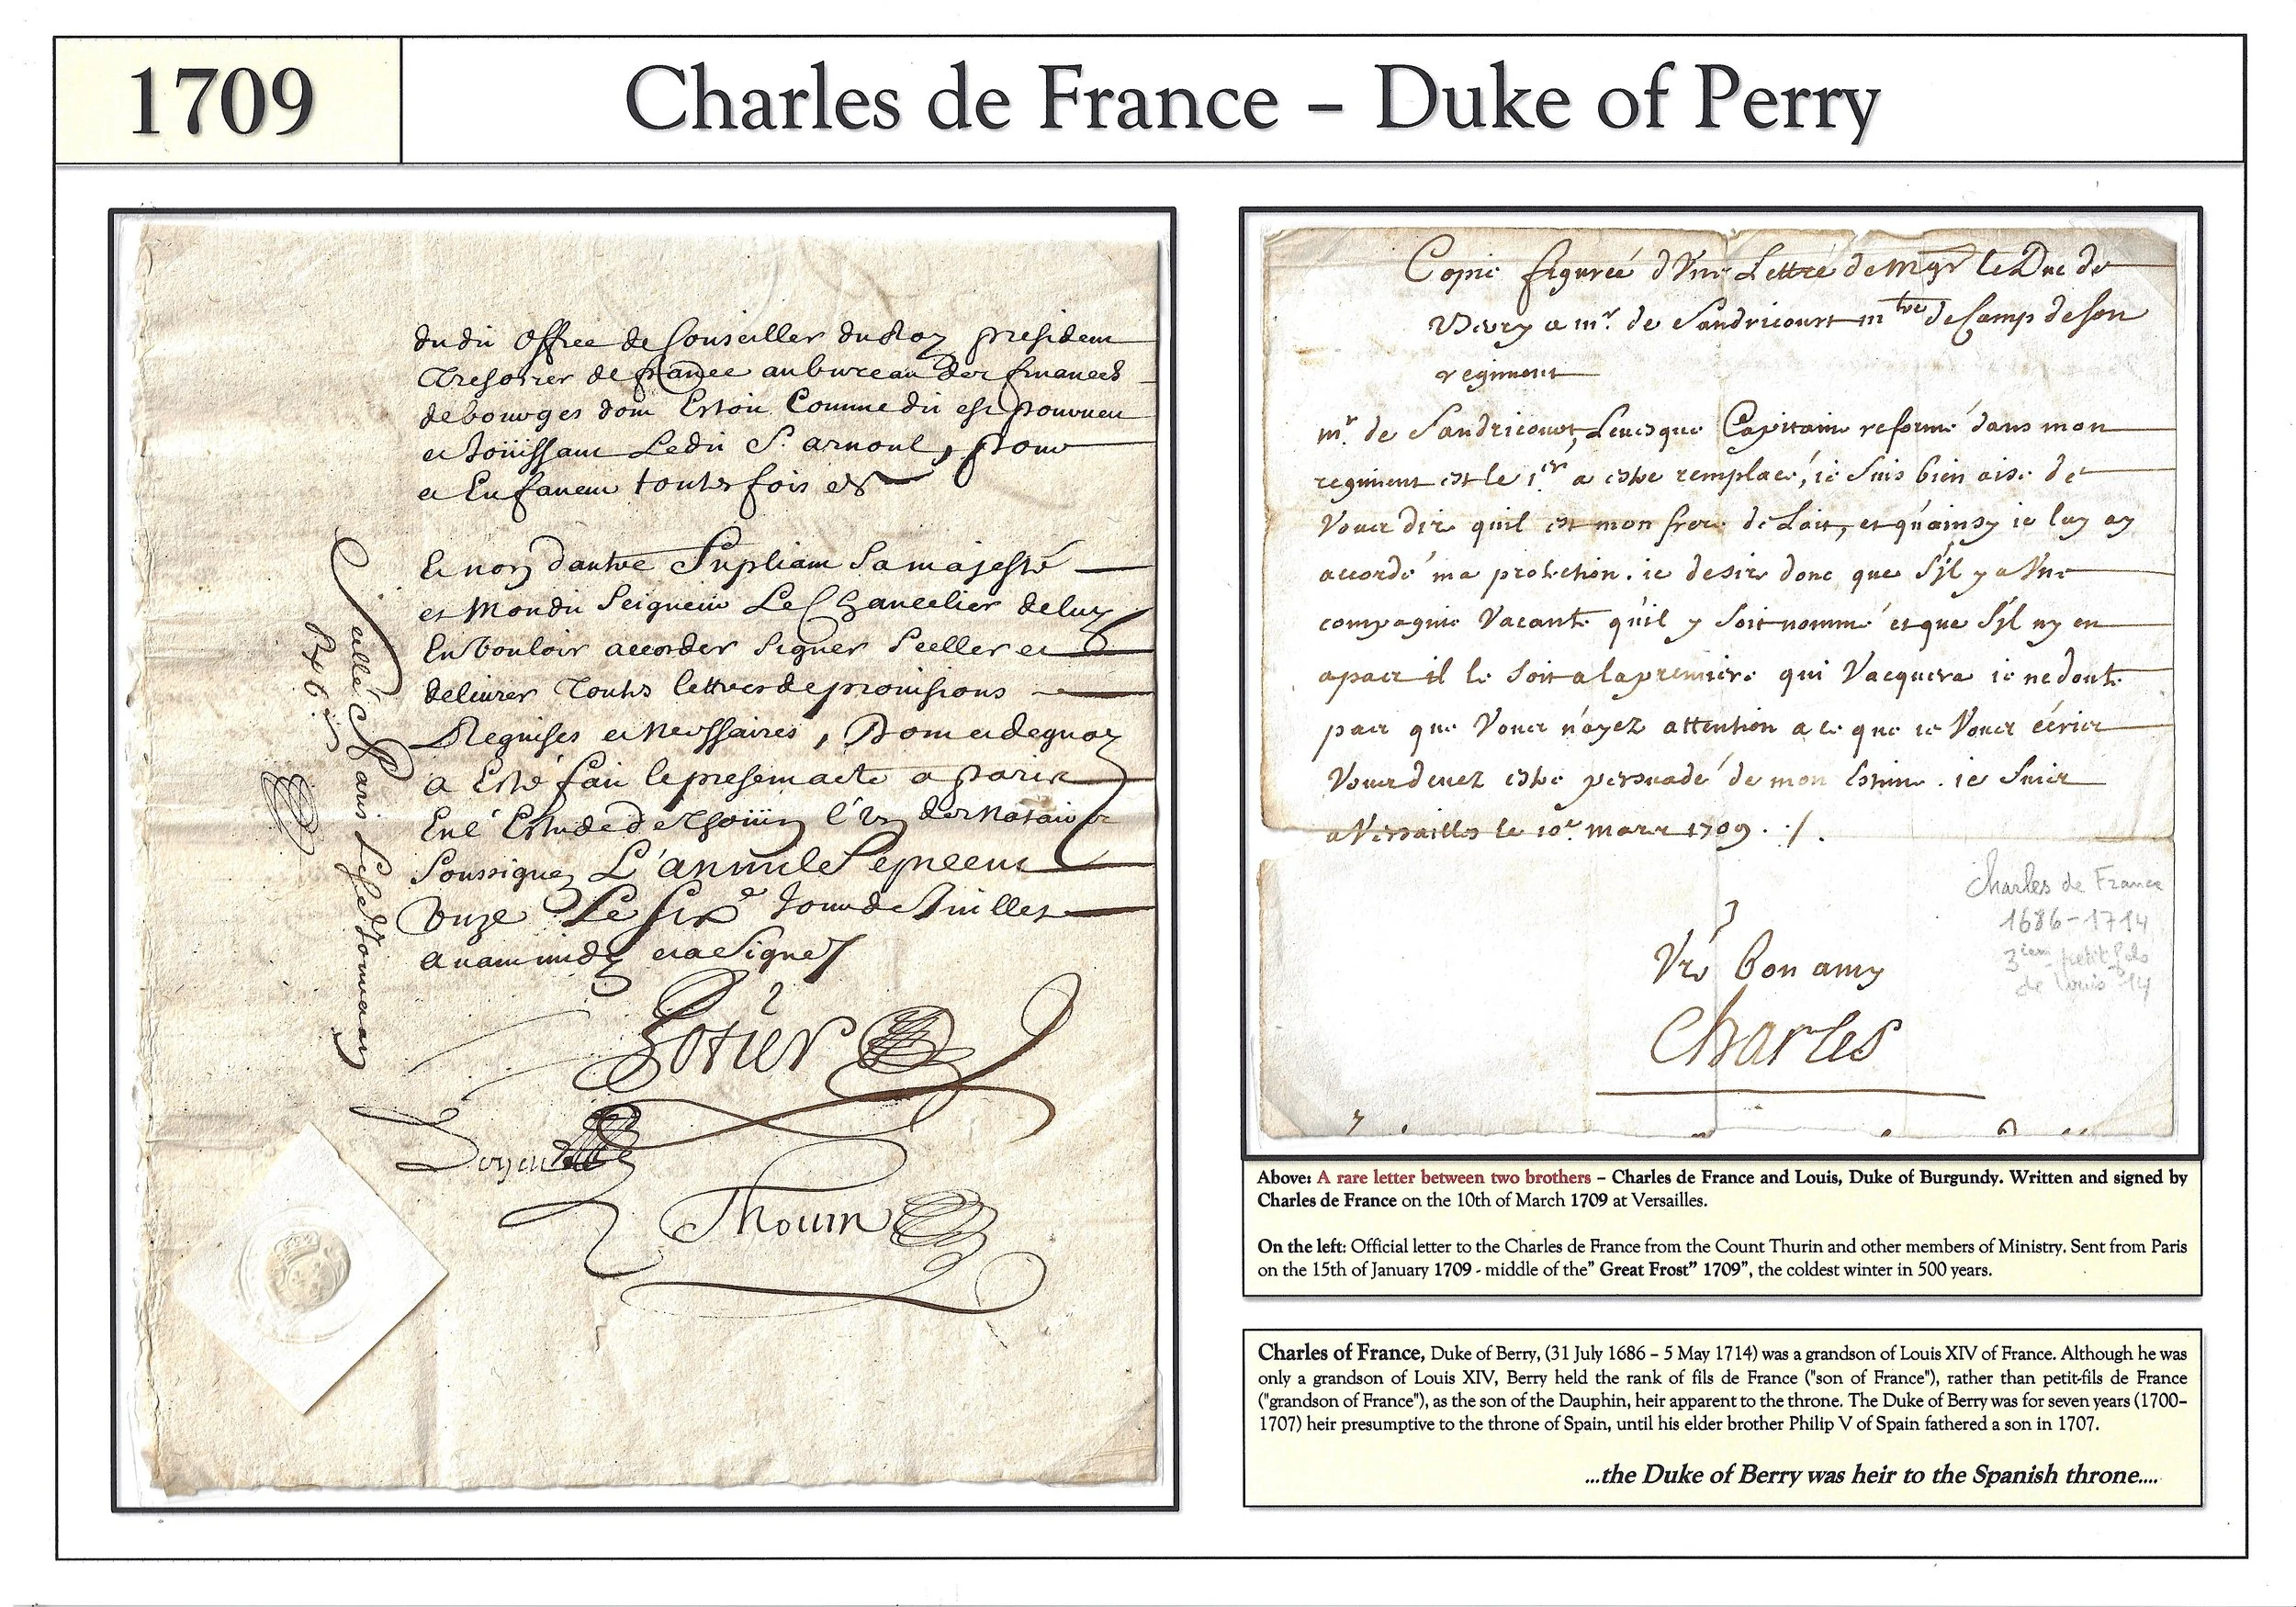 1709
Charles de France – Duke of Perry
dudit office de Conseiller du Roy president
Tresorier de france au bureau des finances
de bourges dont Estoit Comme dit est pourveu
et Joüissant Ledit Sr. arnoul, pour
et En faveur toutes fois et
Et non dautre Supliant Sa majesté
et Mondit Seigneur Le Chancelier de luy
En Vouloir accorder Signer Sceller et
delivrer Toutes lettres de provisions
Requises et Necessaires, Dont et de quoy
a Esté fait le present acte a Paris
En l'Estude de Thoüin l'Un des Notaires
Soussignez L'an mil Sept cent
Onze Le six e Jour de Juillet
avant midy et a Signé
Scellé a Paris Lesd. Jour et an
Thouin
Copie figurée d'Une Lettre de Mgr le Duc de
Berry a mr. de Sandricourt mtre de Camp de son
regiment
mr. de Sandricourt, Levesque Capitaine reformé dans mon
regiment est le 1er a estre remplacé, ie suis bien aise de
Vous dire quil est mon frere de Lait, et qu'ainsy ie luy ay
accordé ma protection. ie desire donc que s'il y a Une
compagnie Vacante qu'il y soit nommé et que s'il ny en
a pas il le soit a la premiere qui Vacquera ie ne doute
pas que Vous n'ayez attention a ce que ie Vous écris
Vous devez estre persuadé de mon Estime. ie suis
a Versailles le 10e. mars 1709. ./.
Charles de France
1686-1714
3iem petit fils
de Louis 14
Vre bon amy
Charles
Above: A rare letter between two brothers – Charles de France and Louis, Duke of Burgundy. Written and signed by
Charles de France on the 10th of March 1709 at Versailles.
On the left: Official letter to the Charles de France from the Count Thurin and other members of Ministry. Sent from Paris
on the 15th of January 1709 - middle of the" Great Frost" 1709", the coldest winter in 500 years.
Charles of France, Duke of Berry, (31 July 1686 – 5 May 1714) was a grandson of Louis XIV of France. Although he was
only a grandson of Louis XIV, Berry held the rank of fils de France ("son of France"), rather than petit-fils de France
("grandson of France"), as the son of the Dauphin, heir apparent to the throne. The Duke of Berry was for seven years (1700–
1707) heir presumptive to the throne of Spain, until his elder brother Philip V of Spain fathered a son in 1707.
...the Duke of Berry was heir to the Spanish throne....